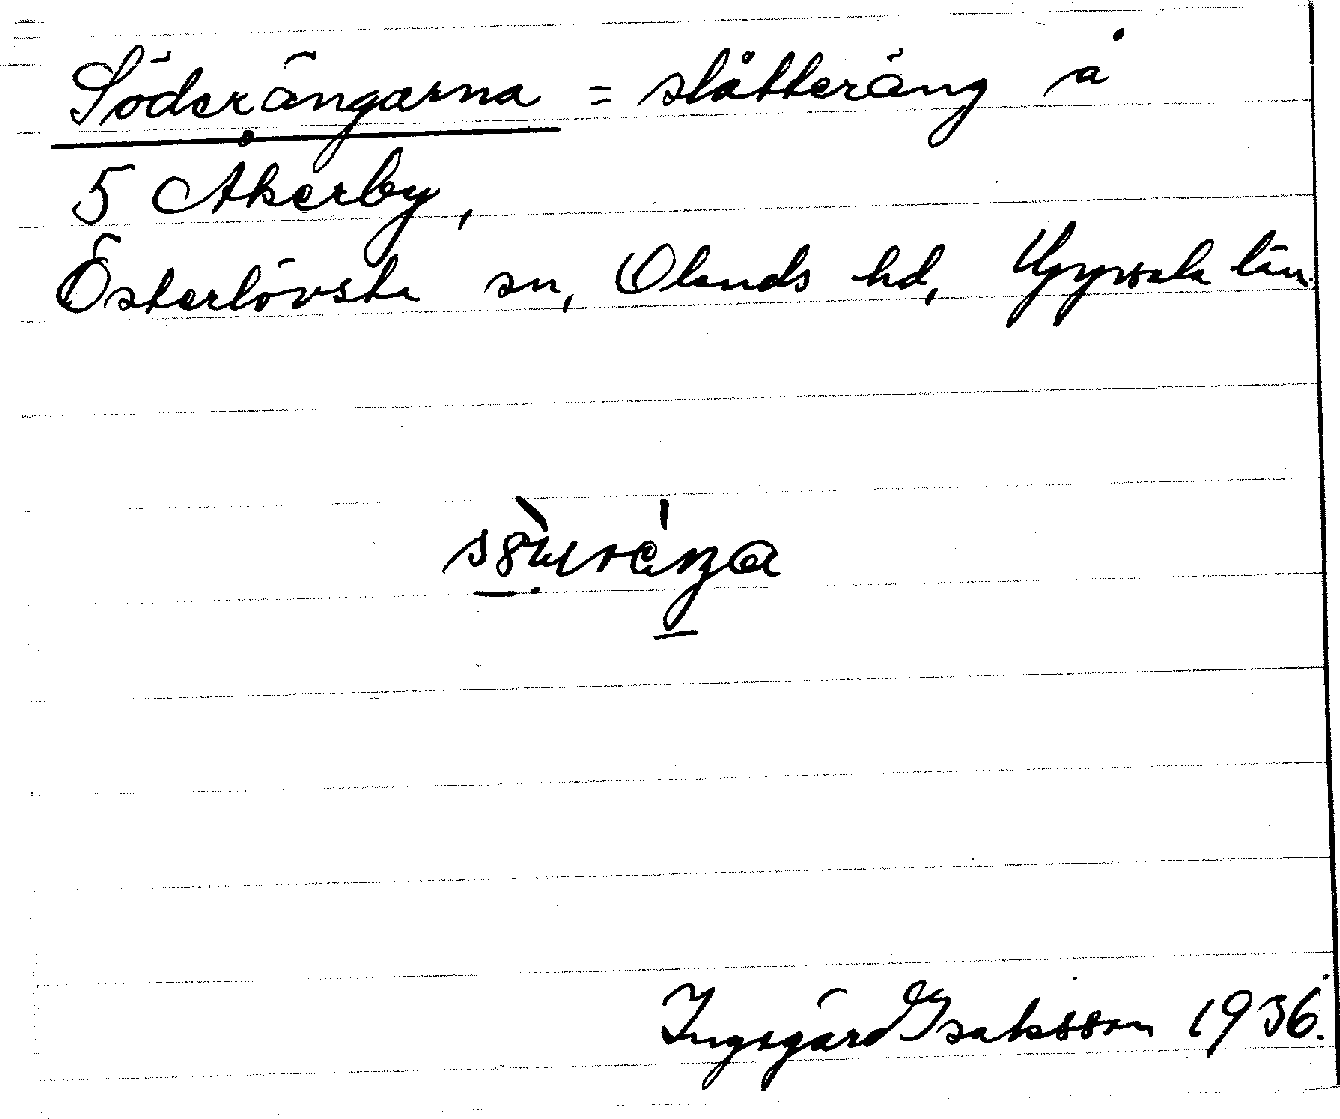 Söderängarna = slåtteräng å
5 Åkerby,
Österlövsta sn, Olands hd, Uppsala län.
Isaksson 1936.